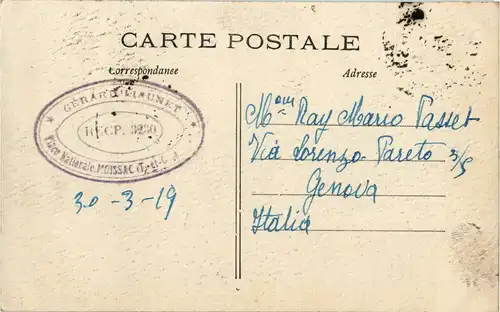 CARTE POSTALE
Correspondance
Adresse
GÉRARD LIAUNET
R.E.C.P. 3230
Place Nationale. MOISSAC (T.-et-G.)
30-3-19
Ray Mario Passet
Via Lorenzo Pareto 3/5
Genova
Italia